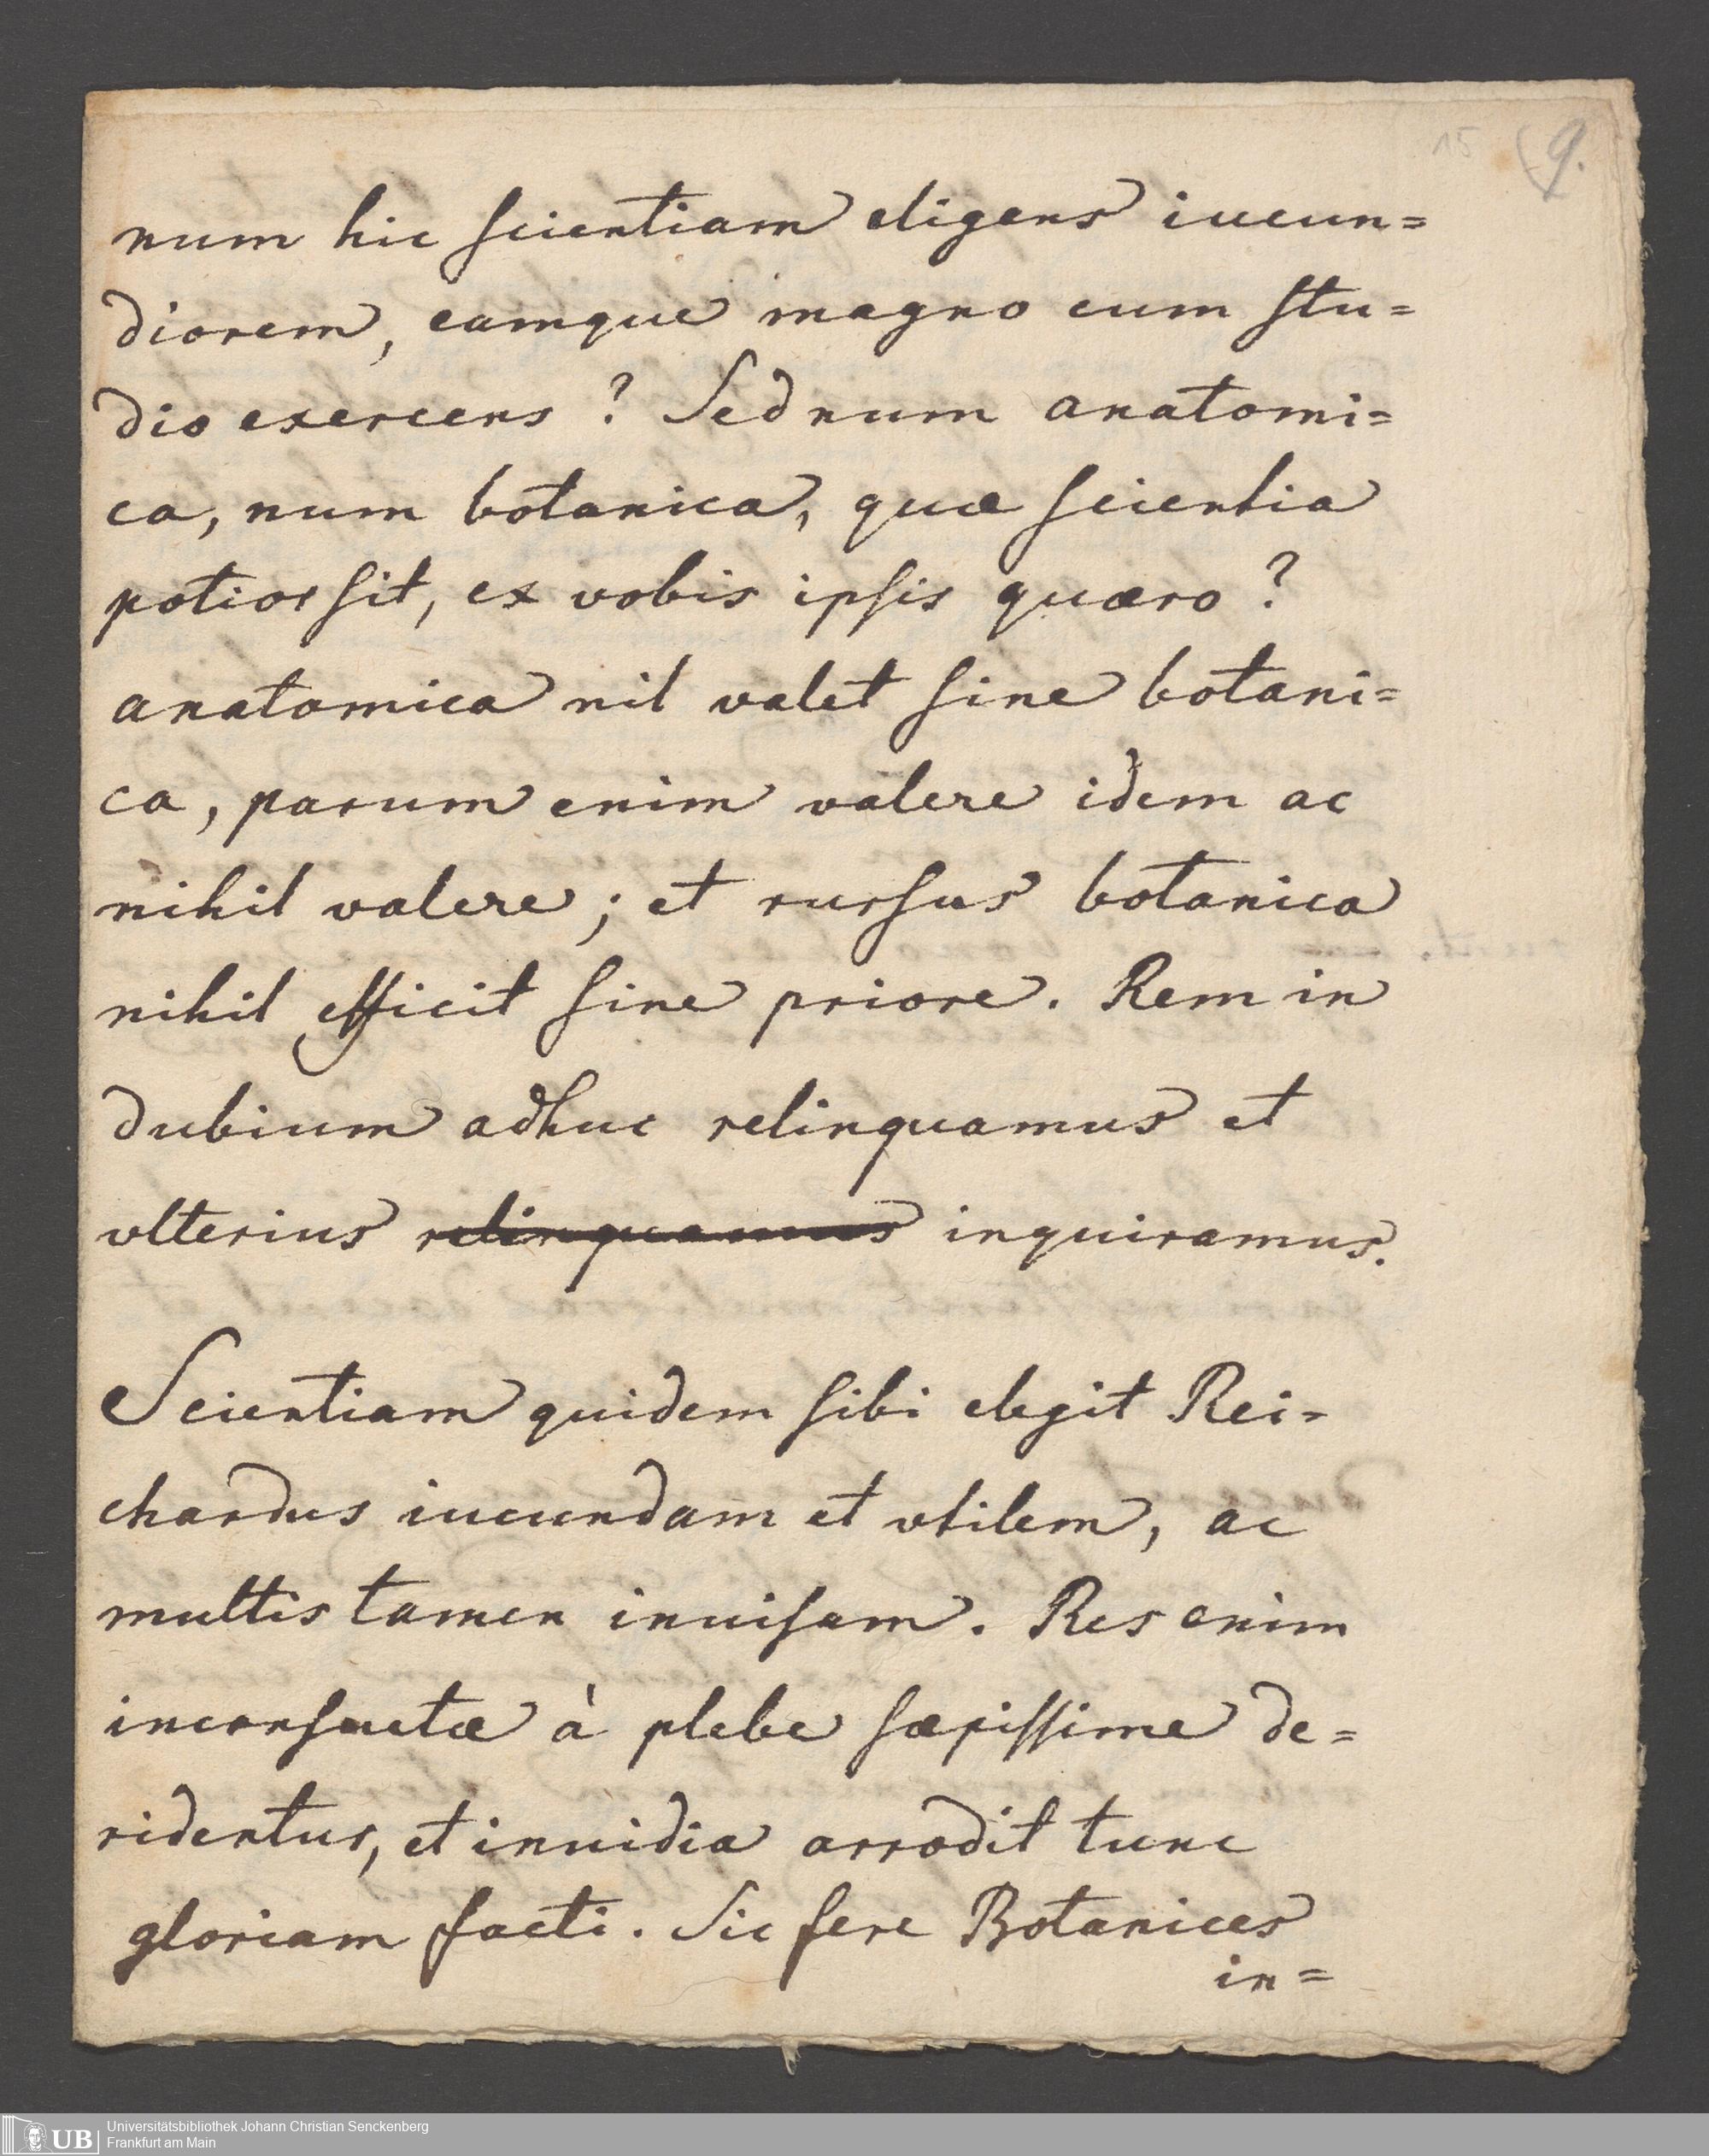 15 (9.
num hic scientiam eligens iucun=
diorem, eamque magno cum stu=
dio exercens? Sed num anatomi=
ca, num botanica, quæ scientia
potior sit, ex vobis ipsis quæro?
anatomica nil valet sine botani=
ca, parum enim valere idem ac
nihil valere; et rursus botanica
nihil efficit sine priore. Rem in
dubium adhuc relinquamus et
vlterius relinquamus inquiramus.
Scientiam quidem sibi elegit Rei=
chardus iucundam et vtilem, ac
multis tamen inuisam. Res enim
inconsuetæ à plebe sæpissime de=
ridentur, et inuidia arrodit tunc
gloriam facti. Sic fere Botanices
in=
UB Universitätsbibliothek Johann Christian Senckenberg
Frankfurt am Main